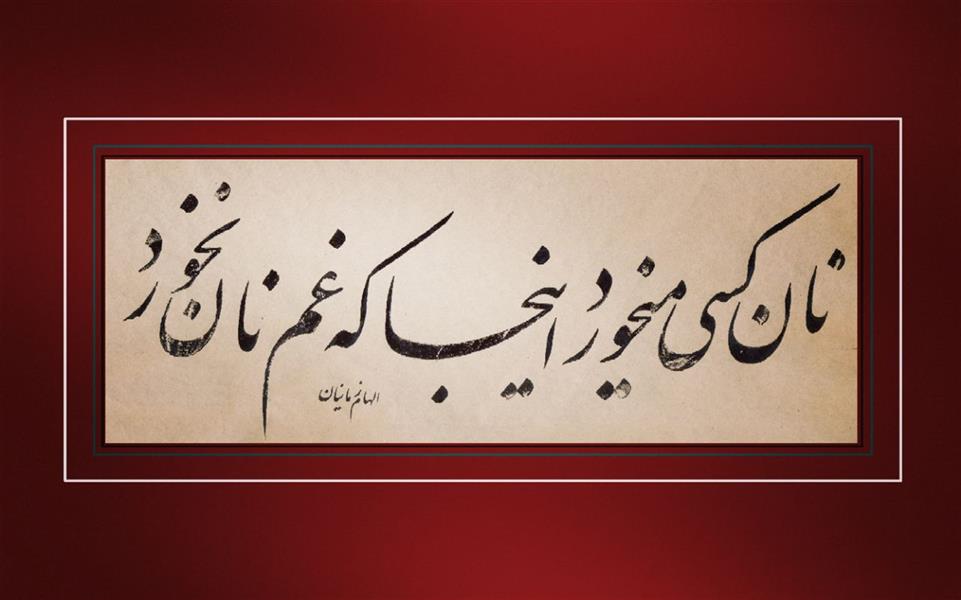 نان کسی میخورد اینجا که غم نان نخورد
الهام زمانیان